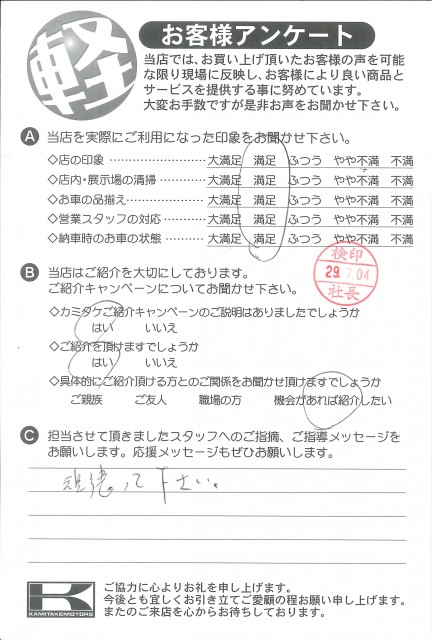 軽
お客様アンケート
当店では、お買い上げ頂いたお客様の声を可能
な限り現場に反映し、お客様により良い商品と
サービスを提供する事に努めています。
大変お手数ですが是非お声をお聞かせ下さい。
A 当店を実際にご利用になった印象をお聞かせ下さい。
◇店の印象 ………………… 大満足 満足 ふつう やや不満 不満
◇店内・展示場の清掃………… 大満足 満足 ふつう やや不満 不満
◇お車の品揃え……………… 大満足 満足 ふつう やや不満 不満
◇営業スタッフの対応………… 大満足 満足 ふつう やや不満 不満
◇納車時のお車の状態………… 大満足 満足 ふつう やや不満 不満
検印
29.7.04
社長
B 当店はご紹介を大切にしております。
ご紹介キャンペーンについてお聞かせ下さい。
◇カミタケご紹介キャンペーンのご説明はありましたでしょうか
はい いいえ
◇ご紹介を頂けますでしょうか
はい いいえ
◇具体的にご紹介頂ける方とのご関係をお聞かせ頂けますでしょうか
ご親族 ご友人 職場の方 機会があれば紹介したい
C 担当させて頂きましたスタッフへのご指摘、ご指導メッセージを
お願いします。応援メッセージもぜひお願いします。
頑張って下さい。
K
KAMITAKEMOTORS
ご協力に心よりお礼を申し上げます。
今後とも宜しくお引き立てご愛顧の程お願い申し上げます。
またのご来店を心からお待ちしております。